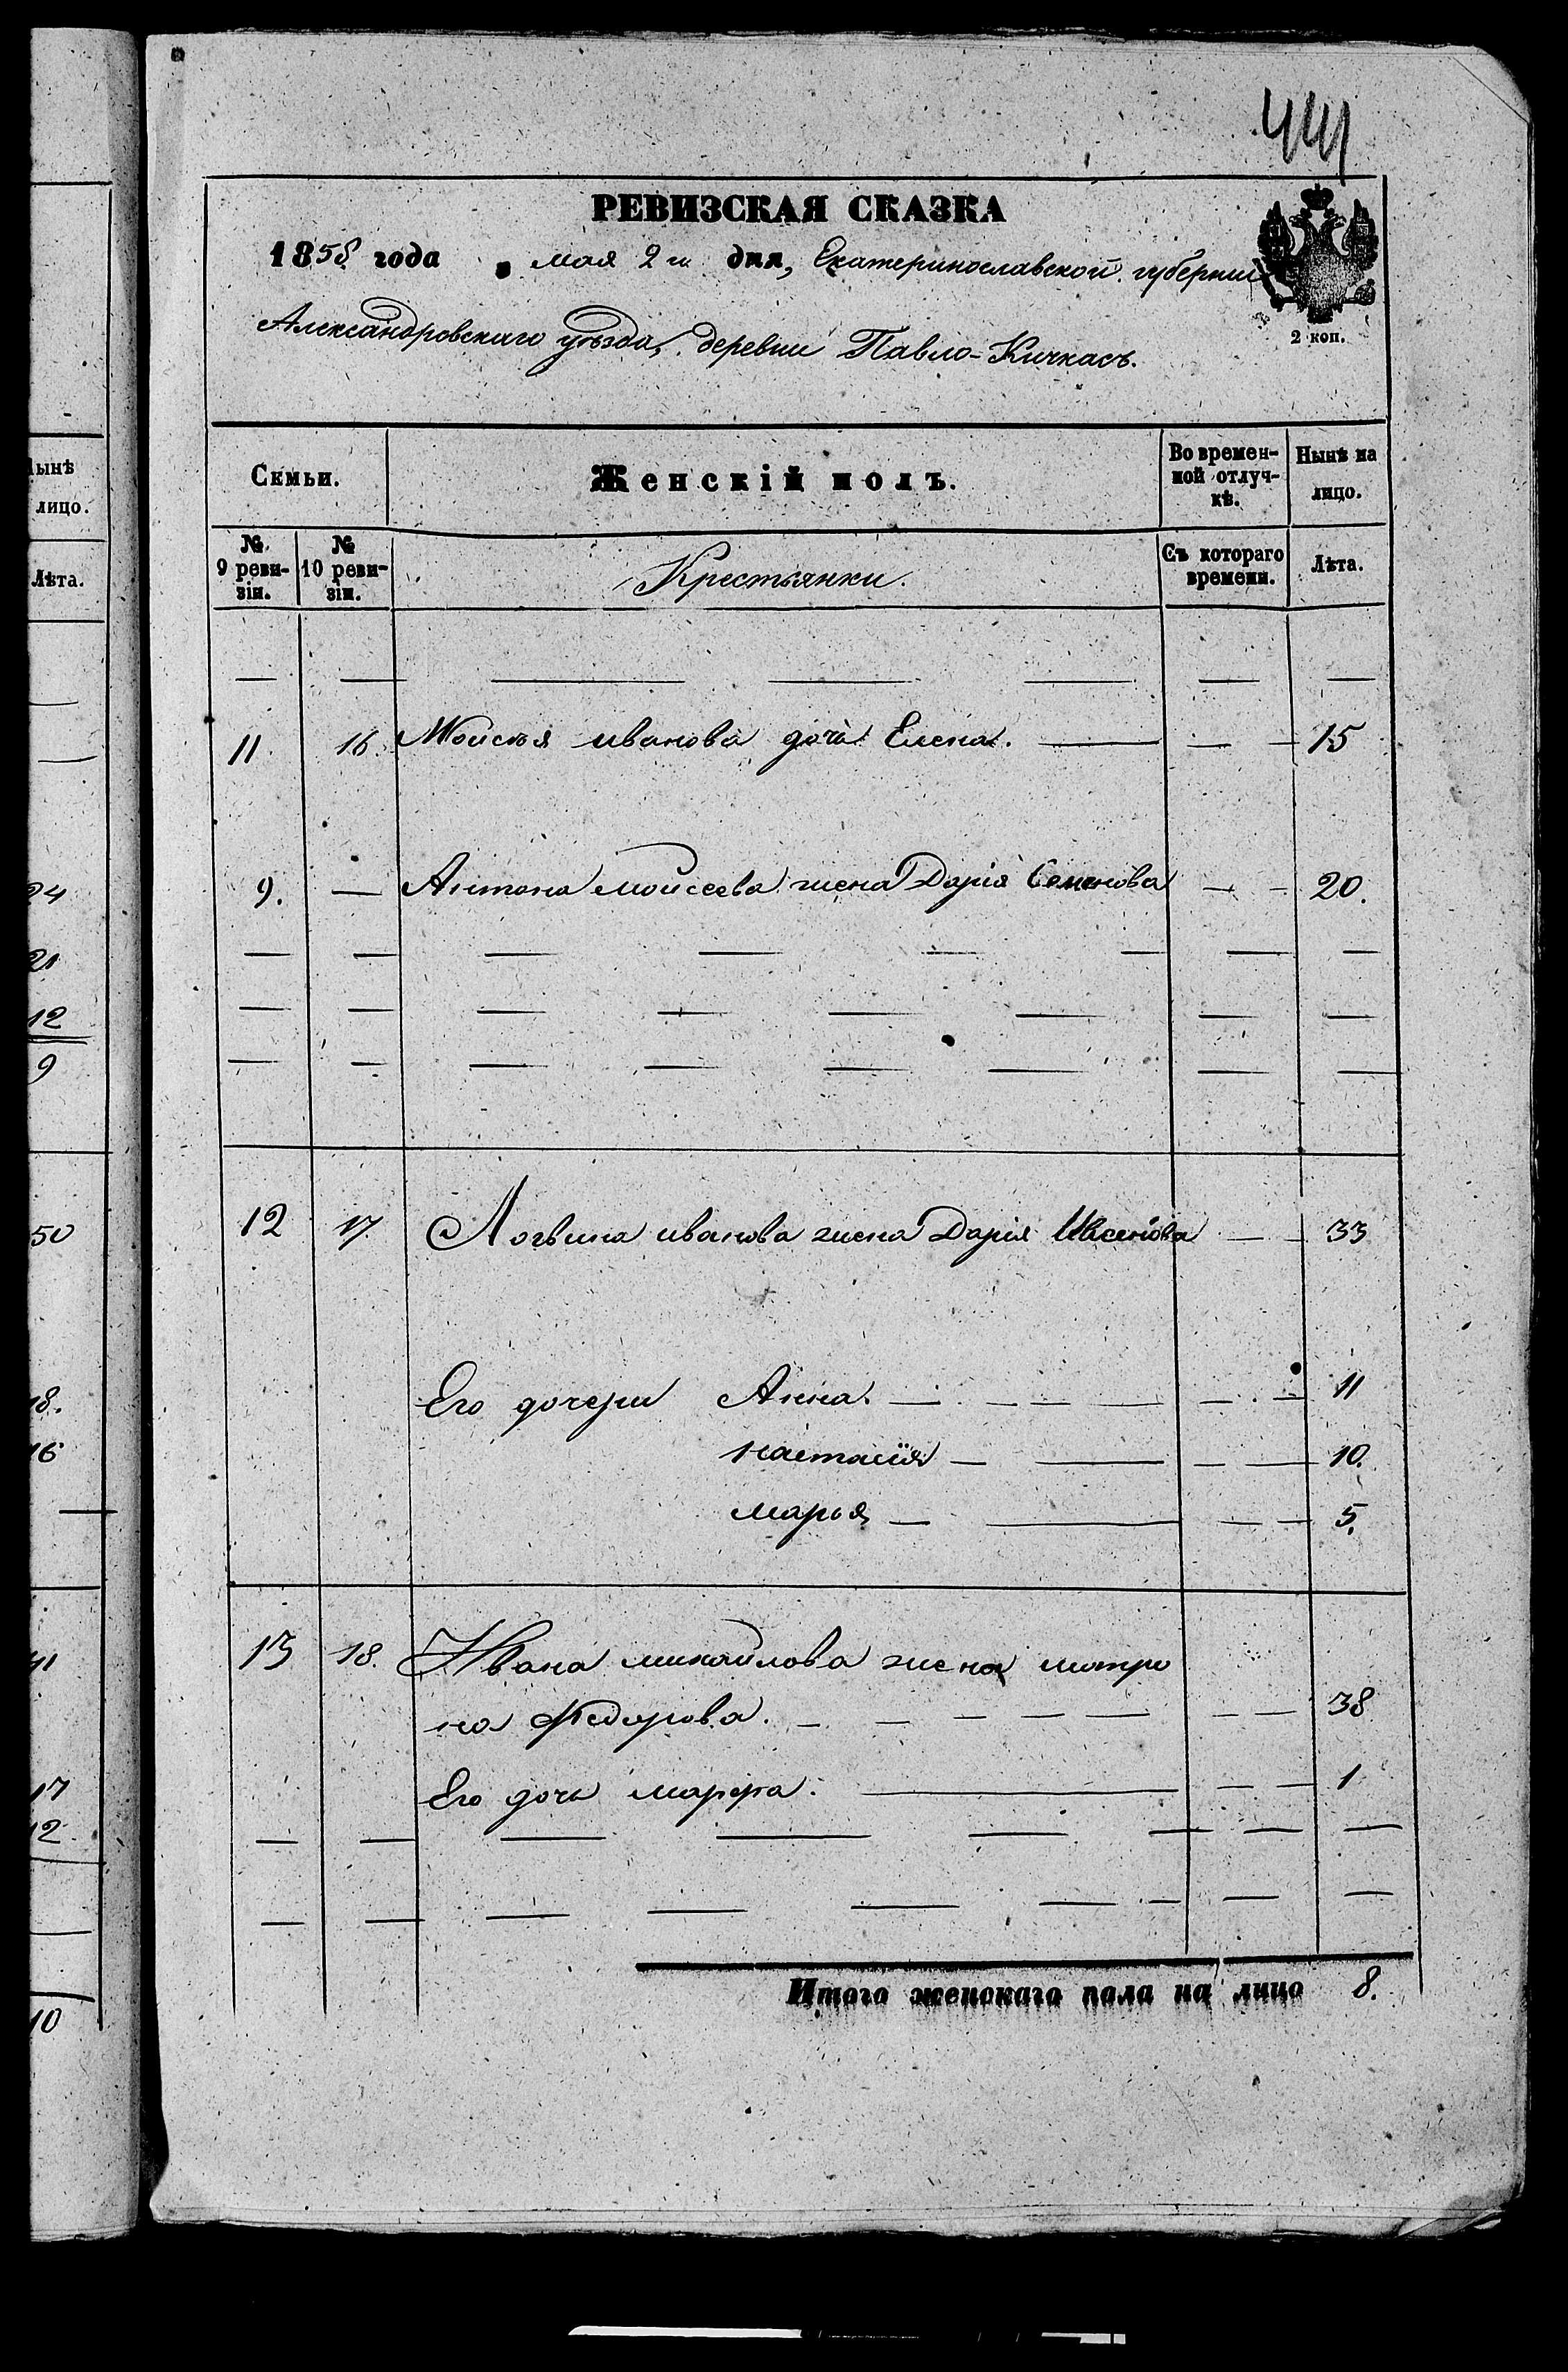 441
РЕВИЗСКАЯ СКАЗКА
1858 года мая 2го дня, Екатеринославской губернии
2 коп.
Александровскаго уѣзда, деревни Павло-Кичкасъ.
Семьи. Женскій полъ. Во времен-ной отлуч-кѣ. Нынѣ на лицо.
№ 9 реви-зіи. № 10 реви-зіи. Крестьянки. Съ котораго времени. Лѣта.
11. 16. Моисея иванова дочь Елена. 15
9. Антона моисеева жена Дарія Семенова 20.
12 17. Логвина иванова жена Дарія 33
Его дочери Анна. 11
настасія 10.
марья 5.
13 18. Ивана михайлова жена матро
на Федорова. 38
Его дочь марфа. 1
Итого женскаго пола на лицо 8.
Нынѣ
лицо.
Лѣта.
24
21
12
9
50
18.
16
41
17
12.
10